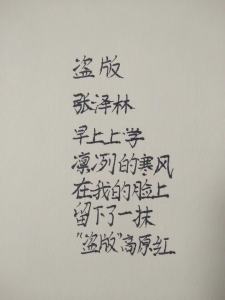 盗版
张泽林
早上上学
凛冽的寒风
在我的脸上
留下了一抹
"盗版"高原红